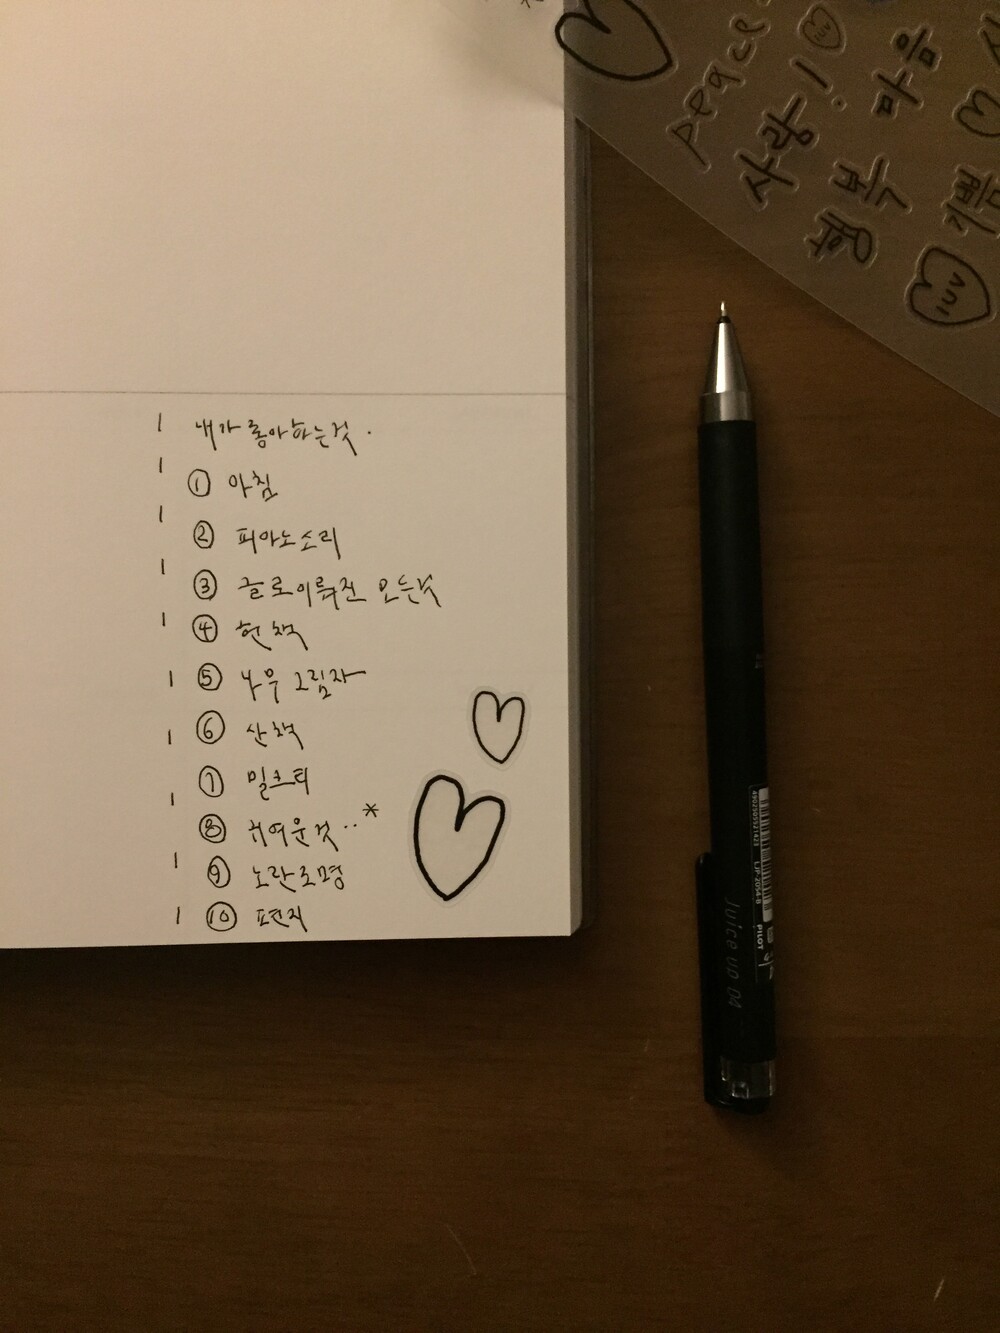 peace
사랑!
luv
마음
행복
기쁨
luv
내가 좋아하는것.
① 아침
② 피아노소리
③ 글로이뤄진 모든것
④ 헌책
⑤ 나무 그림자
⑥ 산책
⑦ 밀크티
⑧ 귀여운것..*
⑨ 노란조명
⑩ 편지
4902505521423 LJP-20S4-B PILOT
Juice up 04